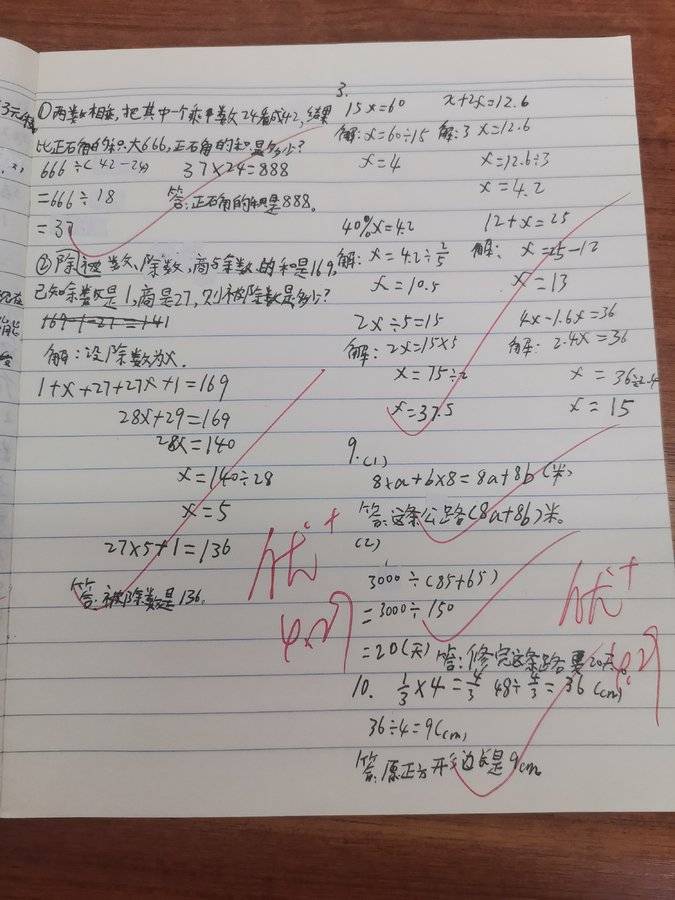 ①两数相乘,把其中一个乘数24看成42,结果
比正确的积大666,正确的积是多少?
666÷(42-24)
=666÷18
=37
37×24=888
答:正确的积是888。
②被除数、除数,商与余数的和是169,
已知余数是1,商是27,则被除数是多少?
169-1-27=141
解:设除数为x.
1+x+27+27x+1=169
28x+29=169
28x=140
x=140÷28
x=5
27×5+1=136
答:被除数是136.
优+
4.27
3.
15x=60
解:x=60÷15
x=4
x+2x=12.6
解:3x=12.6
x=12.6÷3
x=4.2
40%x=4.2
解:x=4.2÷2/5
x=10.5
12+x=25
解:x=25-12
x=13
2x÷5=15
解:2x=15×5
x=75÷2
x=37.5
4x-1.6x=36
解:2.4x=36
x=36÷2.4
x=15
9.(1)
8×a+b×8=8a+8b(米)
答:这条公路(8a+8b)米。
(2)
3000÷(85+65)
=3000÷150
=20(天)
答:修完这条路要20天。
10. 1/3×4=4/3 48÷4/3=36(cm)
36÷4=9(cm)
答:原正方形边长是9cm
优+
4.27